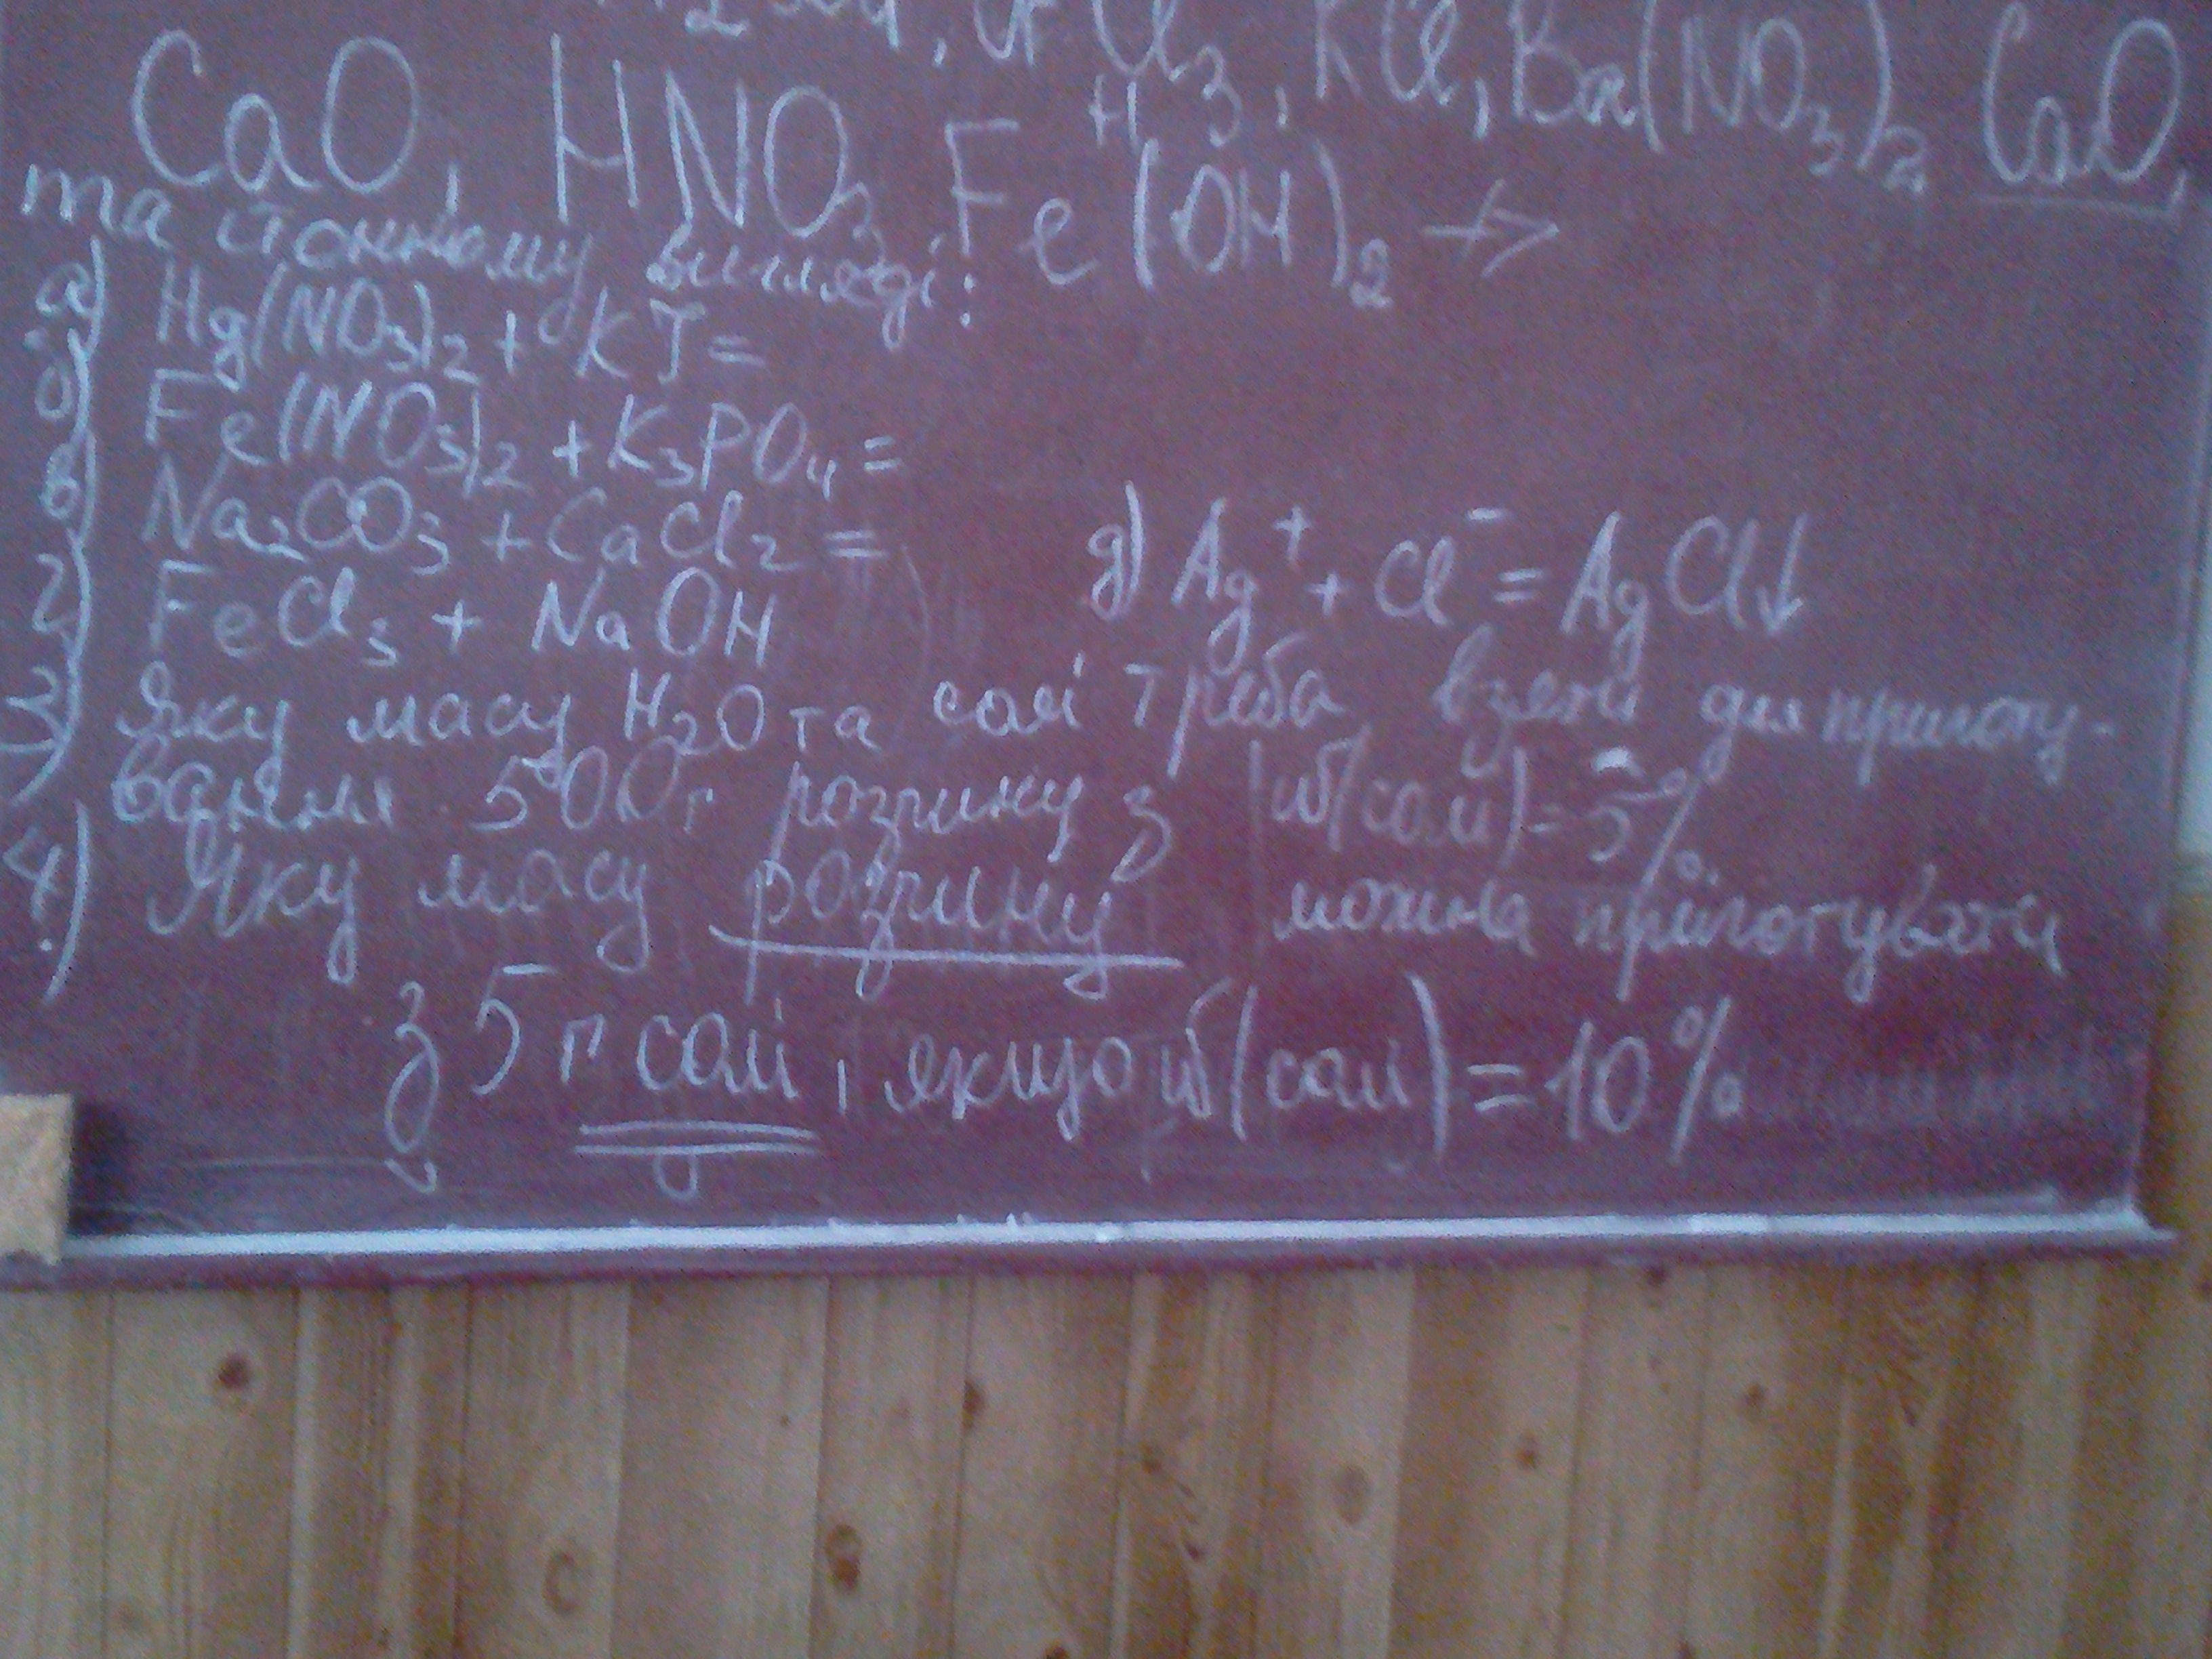 KCl, Ba(NO₃)₂ CaO,
CaO, HNO₃, Fe(OH)₂ →
та йонному вигляді:
а) Hg(NO₃)₂ + KJ =
б) Fe(NO₃)₂ + K₃PO₄ =
в) Na₂CO₃ + CaCl₂ =
г) FeCl₃ + NaOH
д) Ag⁺ + Cl⁻ = AgCl↓
3) Яку масу H₂O та солі треба взяти для приготу-
вання 500 г розчину з W(солі) = 5%.
4) Яку масу розчину можна приготувати
з 5 г солі, якщо W(солі) = 10%